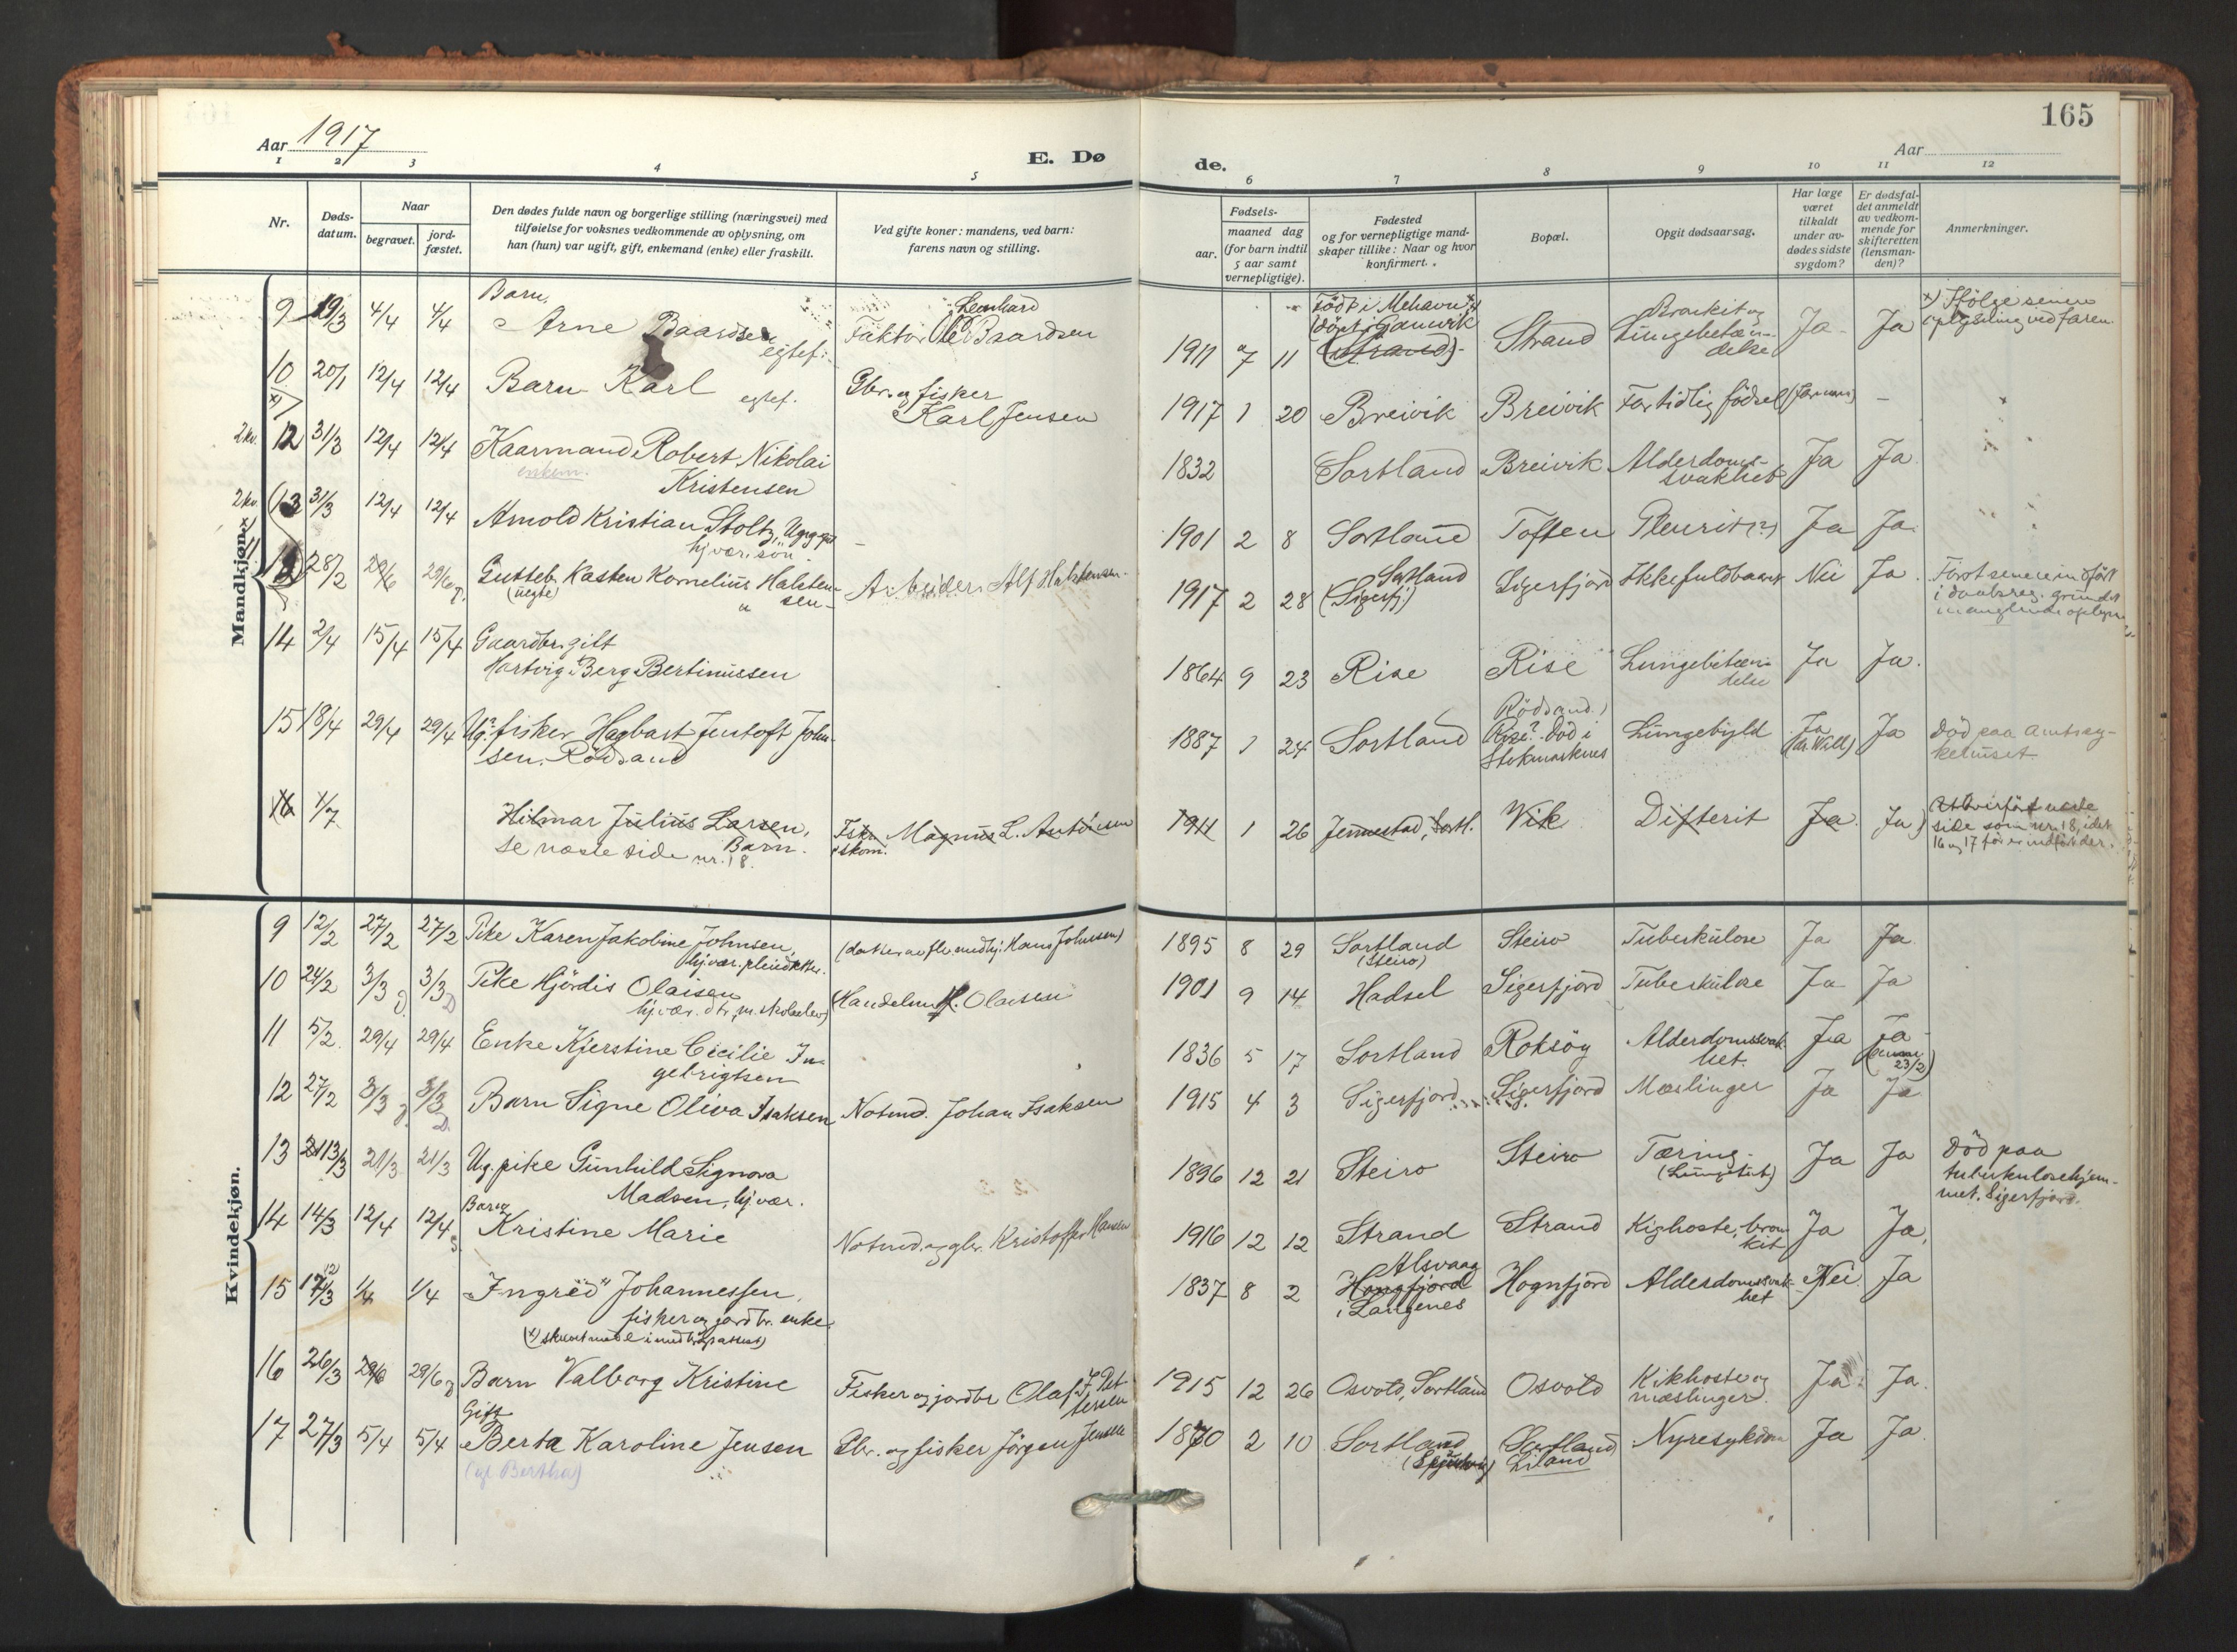 165
Aar 1917
E. Dø
de.
Aar
1 2 3 4 5 6 7 8 9 10 11 12
Nr.
Døds-
datum.
Naar
begravet.
jord-
fæstet.
Den dødes fulde navn og borgerlige stilling (næringsvei) med
tilføielse for voksnes vedkommende av oplysning, om
han (hun) var ugift, gift, enkemand (enke) eller fraskilt.
Ved gifte koner: mandens, ved barn:
farens navn og stilling.
Fødsels-
aar.
maaned dag
(for barn indtil
5 aar samt
vernepligtige).
Fødested
og for vernepligtige mand-
skaper tillike: Naar og hvor
konfirmert.
Bopæl.
Opgit dødsaarsag.
Har læge
været
tilkaldt
under av-
dødes sidste
sygdom?
Er dødsfal-
det anmeldt
av vedkom-
mende for
skifteretten
(lensman-
den)?
Anmerkninger.
Mandkjøn.
9 19/3 4/4 4/4 Barn, Arne Baardsen egtef. Faktor Ole Leonhard Baardsen 1911 7 11 Født i Mehavn x) (døpt i Gamvik (Strand) Strand Bronkit og Lungebetæn-
delse Ja Ja x) Ifølge senere
oplysning ved faren.
10 20/1 12/4 12/4 Barn Karl egtef. Gbr. og fisker
Karl Jensen 1917 1 20 Breivik Breivik For tidlig fødsel (Jormor) -
2 kv. 12 31/3 12/4 12/4 Kaarmand Robert Nikolai
enkem. Kristensen 1832 Sortland Breivik Alderdoms-
svakhet Ja Ja
2 kv. 13 31/3 12/4 12/4 Arnold Kristian Stoltz, Ug. gut
hj.vær. søn - 1901 2 8 Sortland Toften Pleurit (?) Ja Ja
x) 11 28/2 29/6 29/6 Gutteb. Kasten Kornelius Halsten-
(uegte) sen Arbeider Alf Halstensen 1917 2 28 Sortland
(Sigerfj.) Sigerfjord Ikke fuldbaaret Nei Ja Først senere indført
i daabsreg. grundet
manglende oplysn.
14 2/4 15/4 15/4 Gaardbr. gift
Hartvig Berg Bertinussen 1864 9 23 Rise Rise Lungebetæn-
delse Ja Ja.
15 18/4 29/4 29/4 Ug. fisker Hagbart Jentoft John-
sen. Rødsand 1887 1 24 Sortland Rødsand.)
Rise? Død i
Stokmarknes Lungebyld Ja
(dr. Wall) Ja Død paa Amtssy-
kehuset
16 1/7 Hilmar Julius Larsen,
Barn.
se næste side nr. 18. Fisker
skom. Magnus L. Antonsen 1911 1 26 Jennestad, Sortl. Vik Difterit Ja Ja næste
side som nr. 18, idet
16 og 17 før er indført der.
Kvindekjøn.
9 12/2 27/2 27/2 Pike Karen Jakobine Johnsen,
hj.vær. pleiedatter. (datter av Hans Johnsen) 1895 8 29 Sortland
(Steiro) Steiro Tuberkulose Ja Ja
10 24/2 3/3 3/3 Pike Hjørdis Olaisen
hj.vær. dtr., m. skoleelev) (Handelsm. H. Olaisen 1901 9 14 Hadsel Sigerfjord Tuberkulose Ja Ja
11 5/2. 29/4 29/4 Enke Kjerstine Cecilie In-
gebrigtsen 1836 5 17 Sortland Roksøy Alderdomssvak-
het. Ja Ja
23/2)
12 27/2 3/3 3/3 Barn Signe Oliva Isaksen Notmd. Johan Isaksen 1915 4 3 Sigerfjord Sigerfjord Mæslinger Ja Ja
13 13/3 21/3 21/3 Ug. pike Gunhild Signora
Madsen, hj.vær. 1896 12 21 Steiro Steiro Tæring
(Lungetub.) Ja Ja Død paa
tuberkulosehjem-
met, Sigerfjord.
14 14/3 12/4 12/4 Barn
Kristine Marie Notmd. og gbr. Kristoffer Hansen 1916 12 12 Strand Strand Kighoste, bron-
kit Ja Ja.
15 17/3 1/4 1/4 "Ingred" Johannessen,
fisker og jordbr. enke
1837 8 2 Alsvaag
Hognfjord
i Langenes Hognfjord Alderdomssvak-
het Nei Ja
16 26/3 29/6 29/6 Barn Valborg Kristine Fisker og jordbr Olaf J. Pet-
tersen 1915 12 26 Osvold, Sortland Osvold Kikhoste og
mæslinger. Ja Ja.
17 27/3 5/4 5/4 Gift
Berta Karoline Jensen
(gl. Bertha) Gbr. og fisker Jørgen Jensen 1870 2 10 Sortland
Sortland
Liland Nyresykdom Ja Ja.